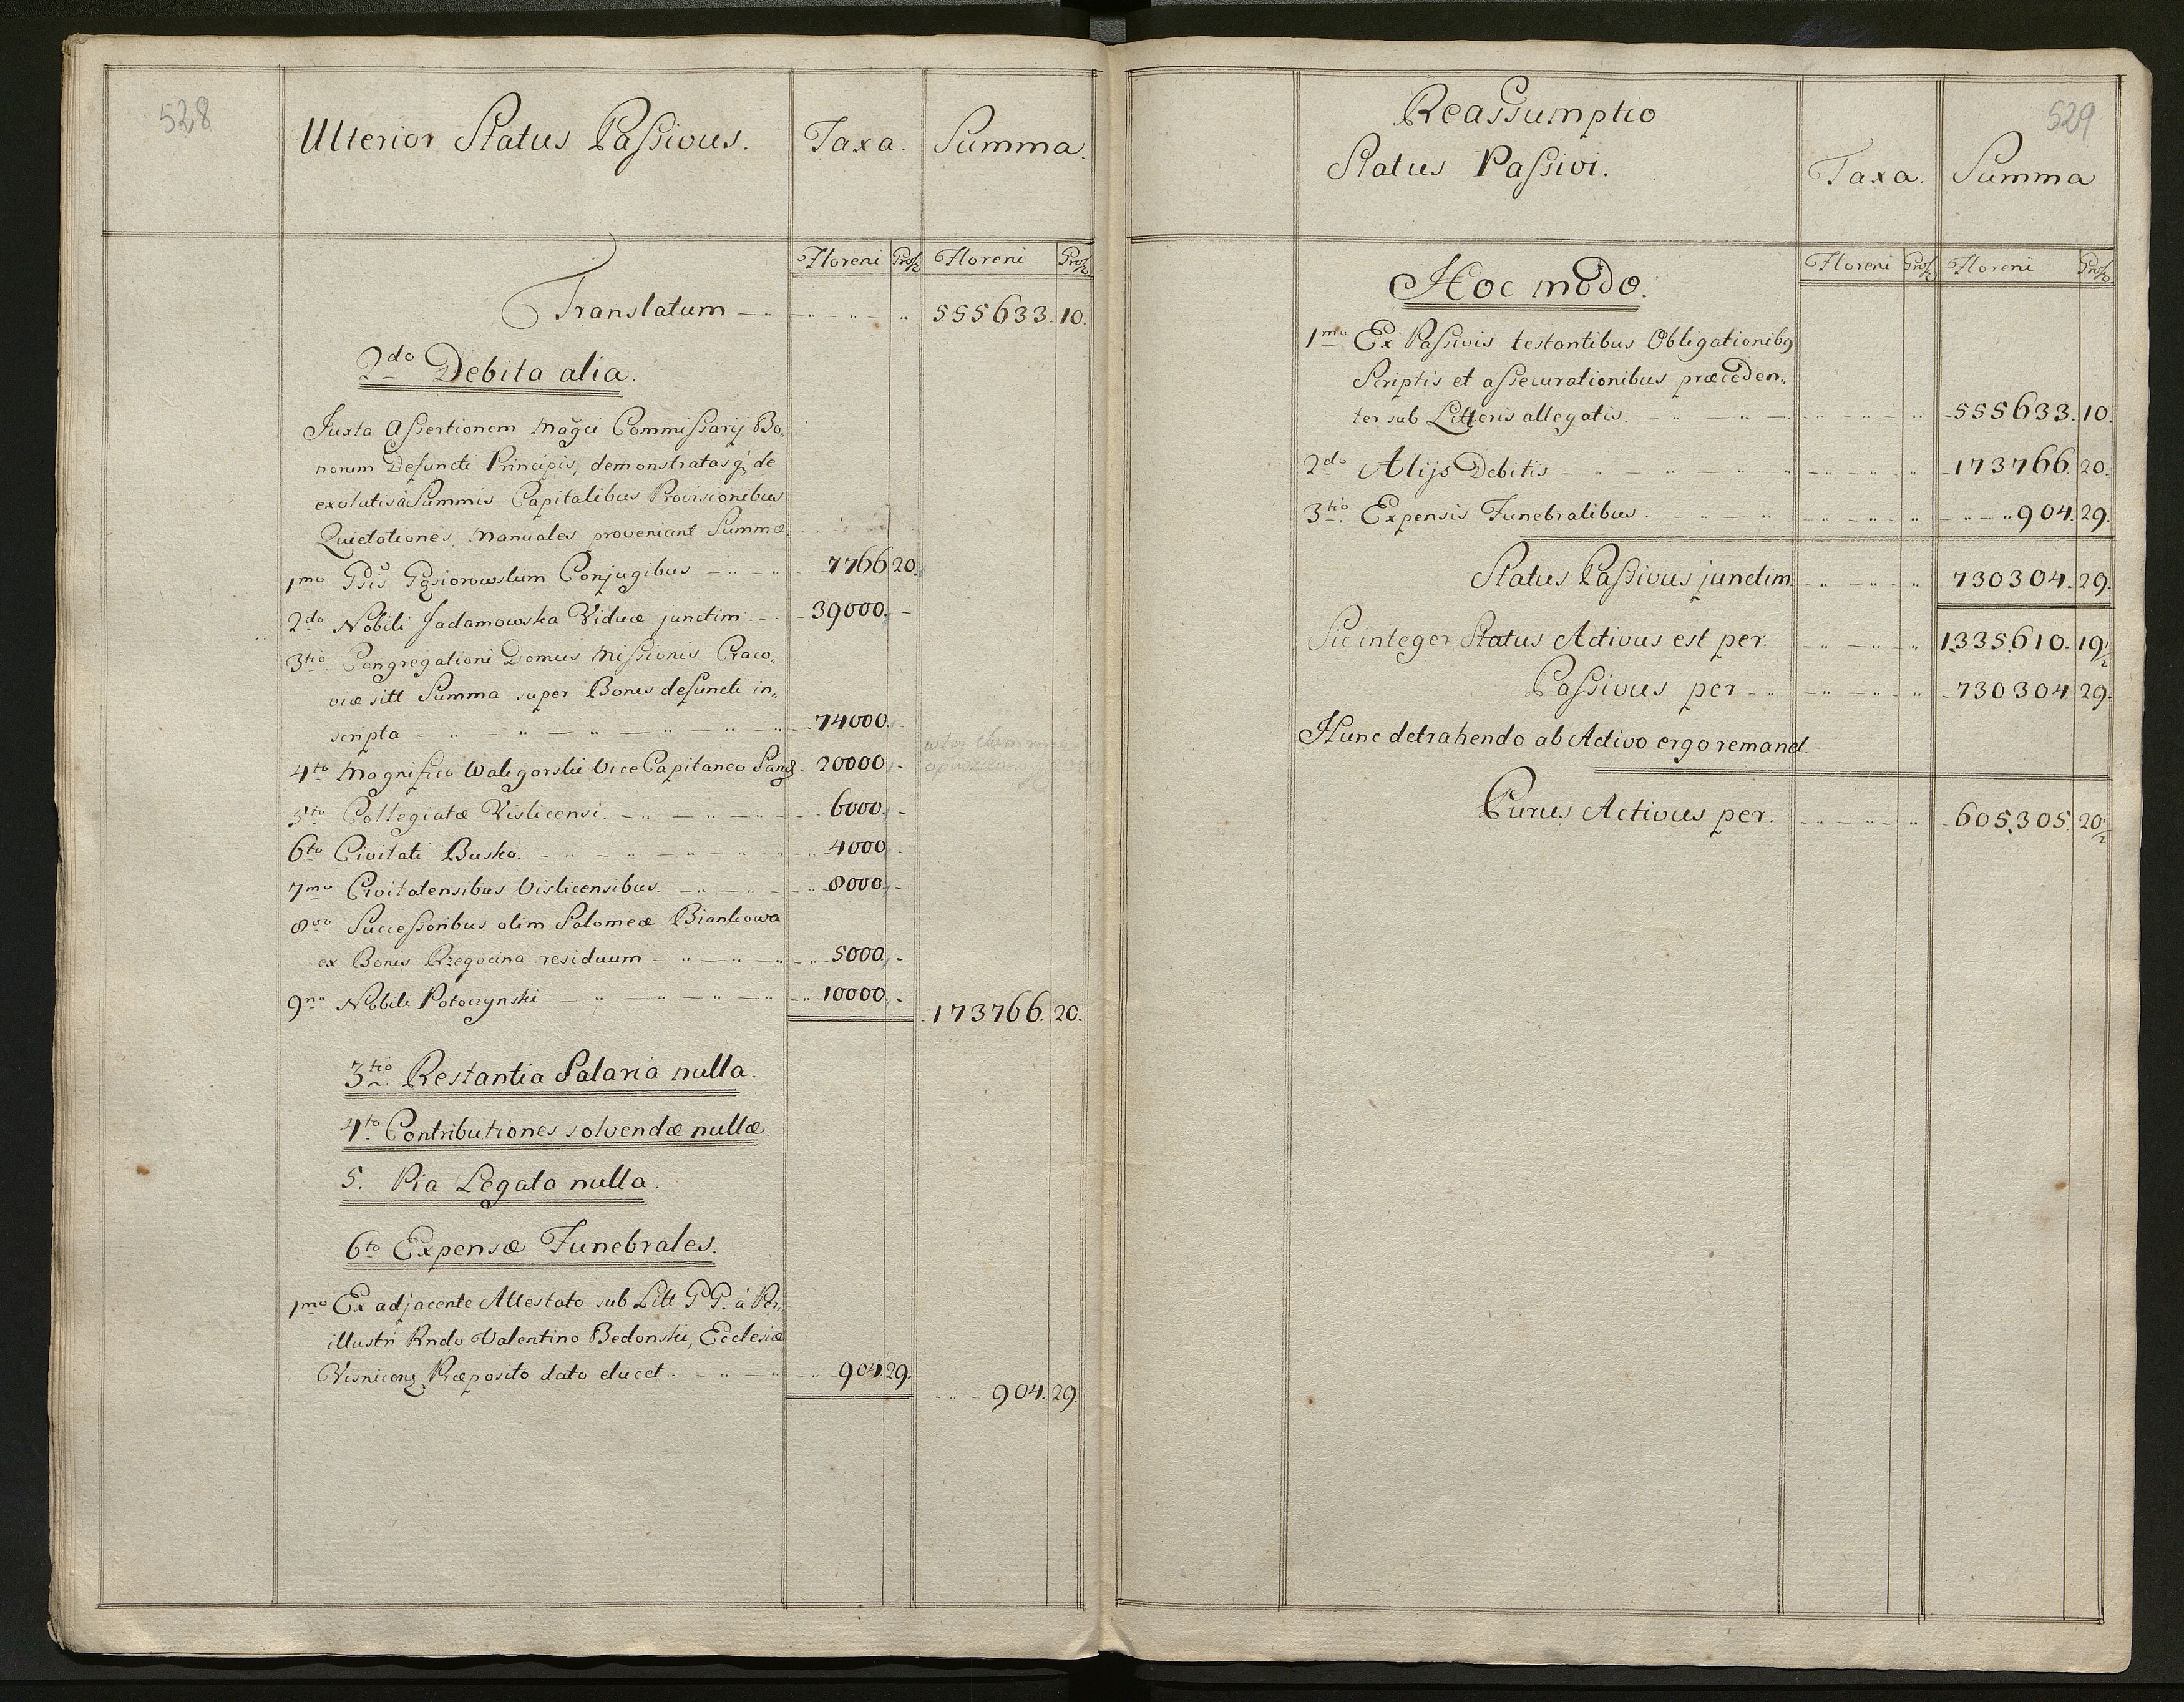 528
Ulterior Status Passivus. Taxa. Summa.
Floreni Gross Floreni Gross
Translatum 555633. 10.
2do Debita alia.
Juxta assertionem Magci Commissarij Bo„
norum Defuncti Principis, demonstratasq; de
exolutis à Summis Capitalibus Provisionibus
Quietationes Manuales proveniunt Summæ
1mo Conjugibus 7766 20.
2do Nobili Jadamowska Viduæ junctim 39000. -
3tio Congregationi Domus Missionis Craco„
viæ sitt Summa super Bonis defuncti in„
scripta 74000. -
4to Magnifico Waligorski Vice Capitaneo 20000. -
5to Collegiatæ Vislicensi. 6000. -
6to Civitati Busko. 4000 -
7mo Civitatensibus Vislicensibus. 8000. -
8vo Successoribus olim Salomeæ Biankowa
ex Bonis Rzegocina residuum 5000. -
9no Nobili Potoczynski 10000. - 173766. 20.
3tio Restantia Salaria nulla.
4to Contributiones solvendæ nullæ.
5. Pia Legata nulla.
6to Expensæ Funebrales.
1mo Ex adjacente Attestato sub Litt GG. à Per„
illustri Rndo Valentino Bedonski, Ecclesiæ
Præposito dato elucet 904 29.
904. 29.
529
Reassumptio
Status Passivi. Taxa. Summa
Floreni Gross Floreni Gross
Hoc modo.
1mo Ex Passivis testantibus Obligationibq
Scriptis et assecurationibus præceden„
ter sub Litteris allegatis. 555633. 10.
2do Alijs Debitis 173766. 20.
3tio Expensis Funebralibus 904. 29.
Status Passivus junctim. 730304. 29.
Sic integer Status Activus est per. 1335610. 19½
Passivus per 730304. 29.
Hunc detrahendo ab Activo ergo remanet.
Purus Activus per. 605305. 20½